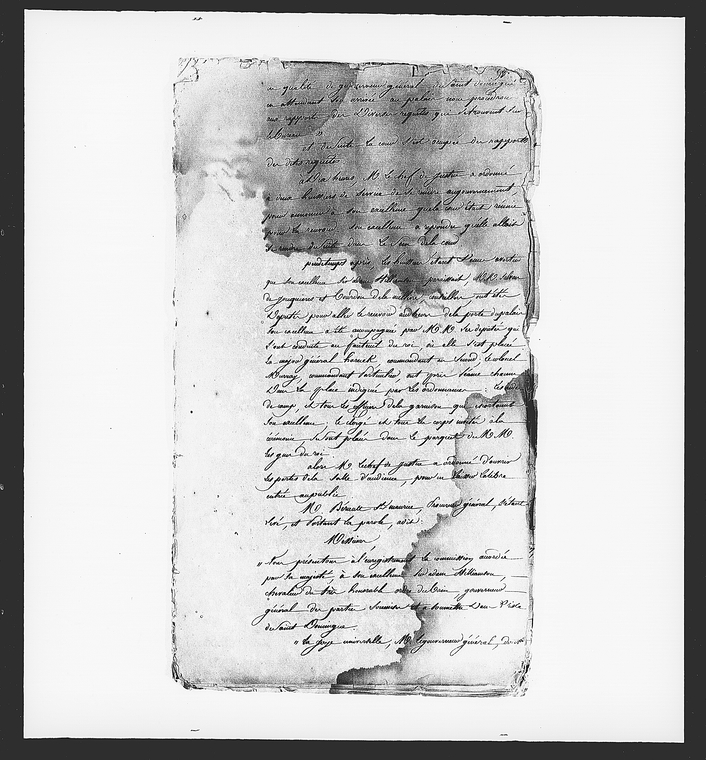 en qualité de gouverneur général de Saint Domingue
en attendant son arrivée au palais nous procédions
aux rapports des Diverses requêtes qui se trouvent sur
le Bureau "
et de suite la cour s'est occupée des rapports
des dites requêtes
à dix heures M. le chef de justice a ordonné
à deux huissiers de service de se rendre au gouvernement,
pour annoncer à son excellence que la cour était réunie
pour la recevoir son excellence a répondu qu'elle allait
se rendre de suite dans le sein de la cour
peu de temps après les huissiers étant venus avertir
que son excellence Sir adam Williamson paraissait, M.M.
de jonquieres et Bourdon de la milliere conseillers, ont été
Députés pour aller le recevoir au dehors de la porte du palais
Son excellence a été accompagné par M.M. les députés qui
l'ont conduite au fauteuil du roi où elle s'est placée
le major général horneck commandant en second; le colonel
Murray, commandant Particulier, ont pris séance chacun
Dans la place indiquée par les ordonnances : les aides
de camp, et tous les officiers de la garnison qui
Son excellence; le clergé et tous les corps invités à la
cérémonie, se sont placés dans le parquet de M.M.
les gens du roi
alors M. le chef de justice a ordonné d'ouvrir
les portes de la Salle d'audience, pour en laisser l'
entrée au public
M. Bérault St maurice, Procureur général, s'étant
levé, et Portant la parole, a dit :
Messieurs
" Nous présentons à l'enregistrement la commission accordée
par Sa majesté, à son excellence Sir adam Williamson,
chevalier du très honorable ordre du Bain gouverneur
général des parties Soumises et à soumettre Dans l'isle
de Saint Domingue.
" La joye universelle, M. le gouverneur général, dont